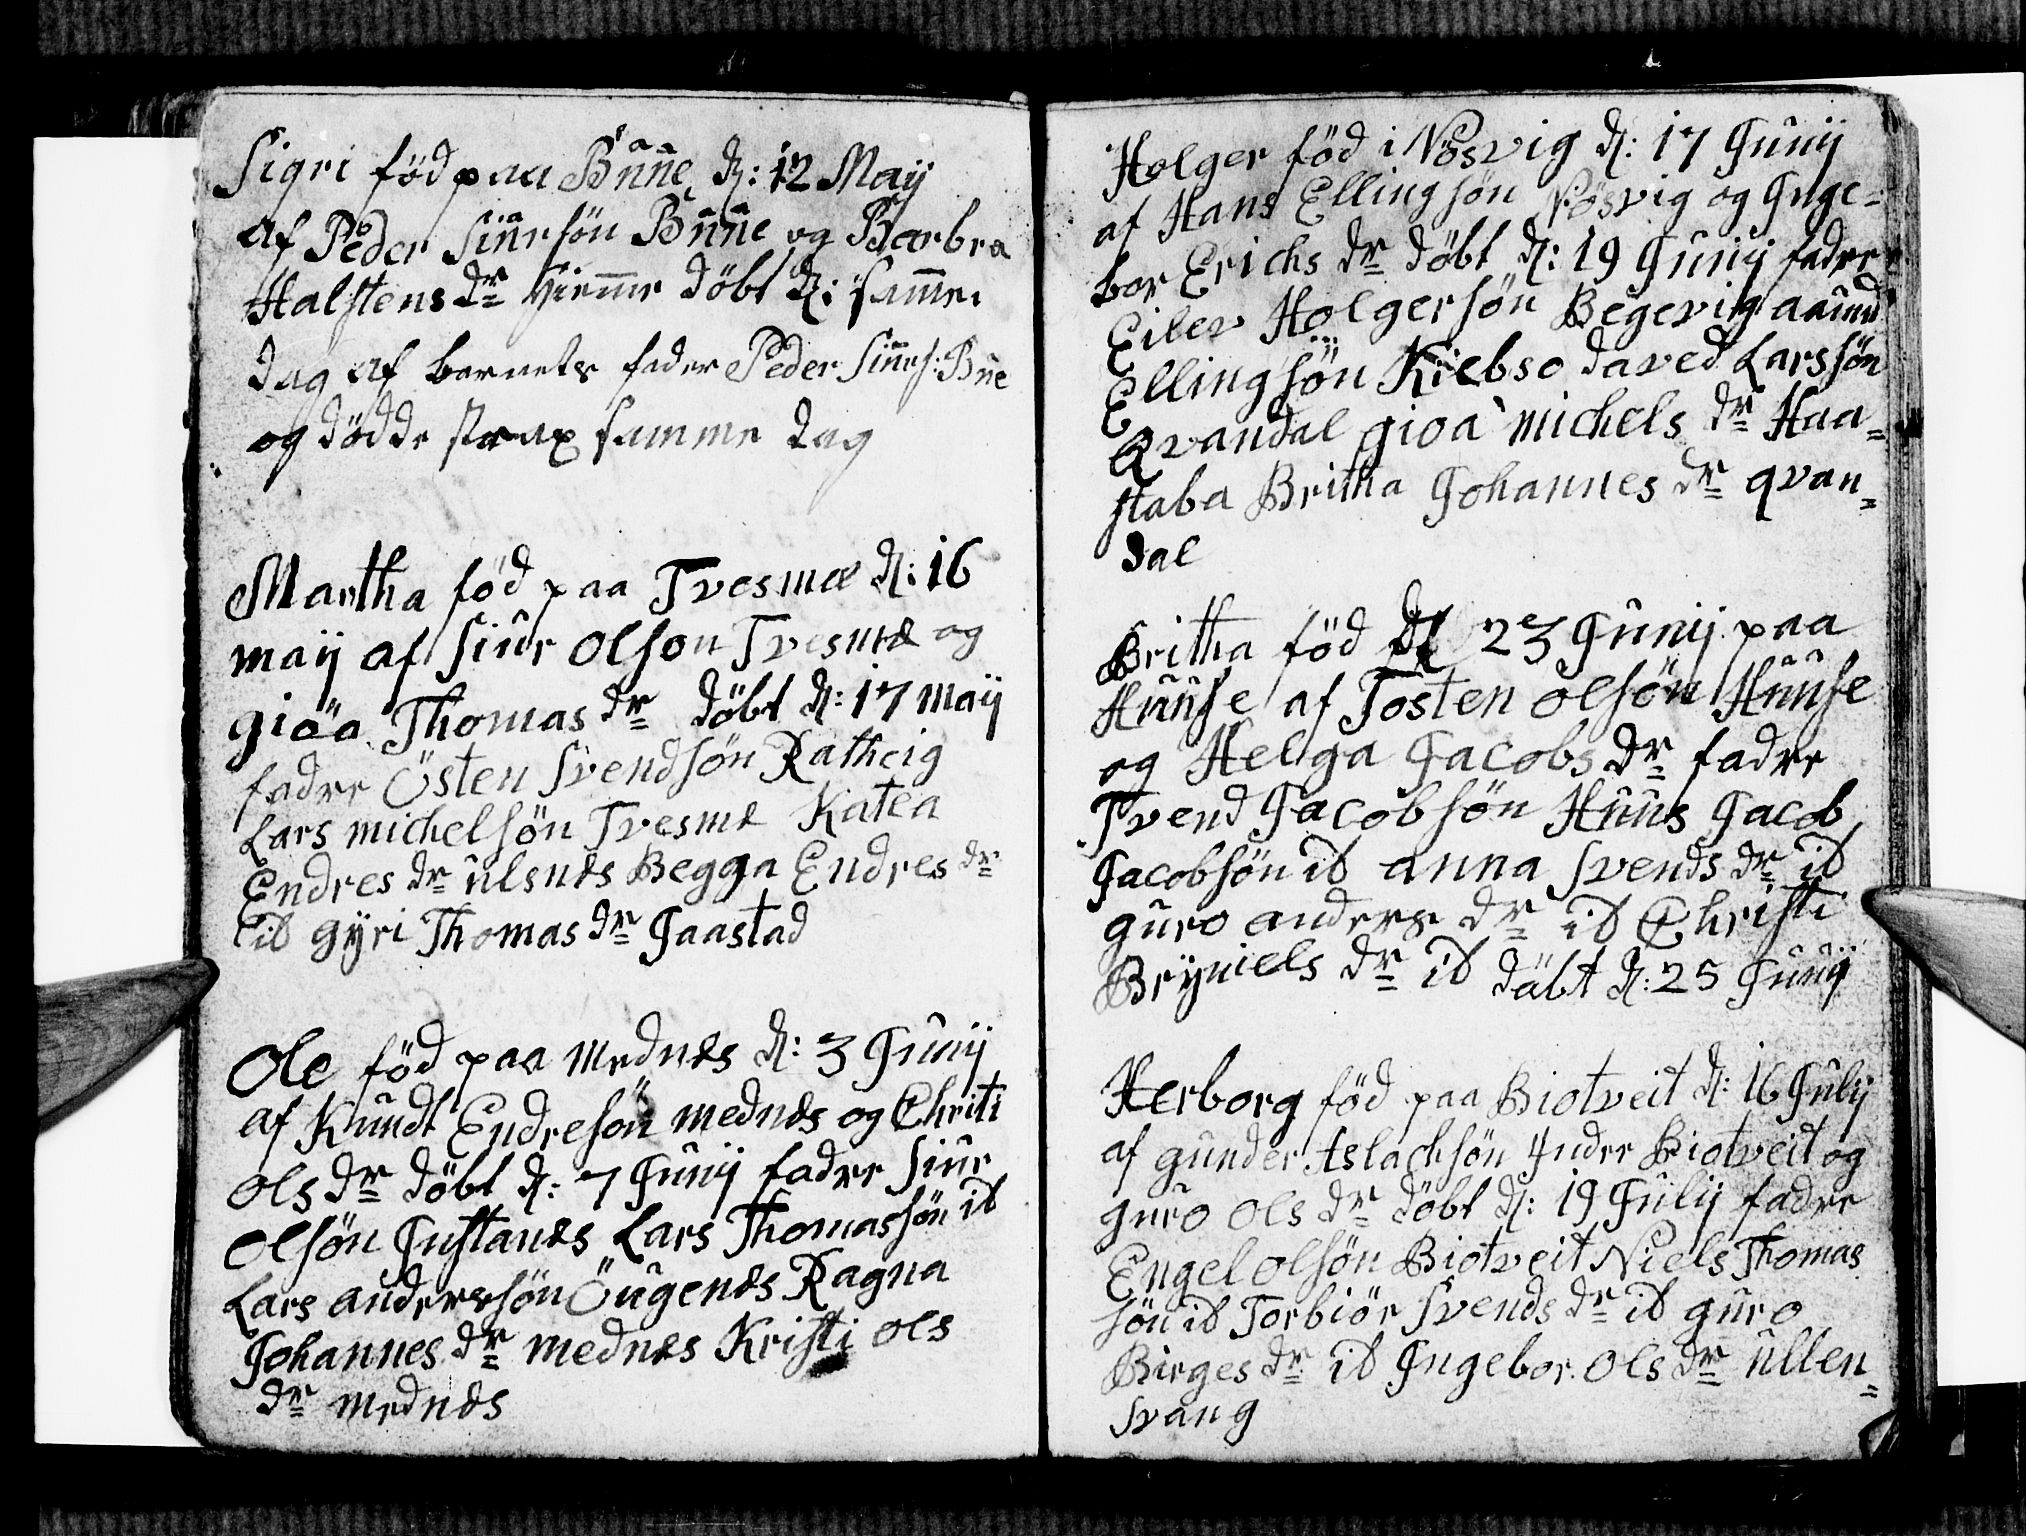 Sigri föd paa Bũne d: 12 Maij
af Peder Siursön Bũne og Barbra
Halstens dr Hiemme döbt d: samme
dag af barnets fader Peder Siurs: Bũe
og dödde strax samme dag
Martha föd paa Tvesmœ d: 16
maij af Siur Olson Tvesmœ og
gioa Thomas dr döbt d: 17 maij
fadre Östen Svendsön Ratheig
Lars michelsön Tvesmœ Katea
Endres dr ulsnæs Begga Endres dr
id gÿri Thomas dr Jaastad
Ole föd paa mednæs d: 3 Junij
af Knudt Endresön mednæs og Christi
ols dr döbt d: 7 Junij fadre Siur
olsön Justanæs Lars Thomassön id
Lars anderssön Öugenæs Ragna
Johannes dr mednæs Kristi ols
dr mednæs
Holger föd i Nösvig d: 17 Junij
af Hans Ellingsön Nösvig og Inge=
bor Erichs dr döbt d: 19 Junij fadre
Eilev Holgersön Begevig aamund
Ellingsön Kiebso daved Larssön
Qvandal gioa michels dr Haa=
staba Britha Johannes dr qvan=
dal
Britha föd d 23 Junij paa
Huuse af Tosten olsön Huuse
og Helga Jacobs dr fadre
Svend Jacobsön Huus Jacob
Jacobsön id anna Svends dr id
guro anders dr id Christi
Brÿniels dr id däbt d: 25 Junij
Herborg föd paa Biotveit d: 16 Julij
af gunder Aslachsön Indre Biotveit og
guro ols dr döbt d: 19 Julij fadre
Engel olsön Biotveit Niels Thomas
sön id Torbiör Svends dr id guro
Birges dr id Ingebor. ols dr ullen=
svang